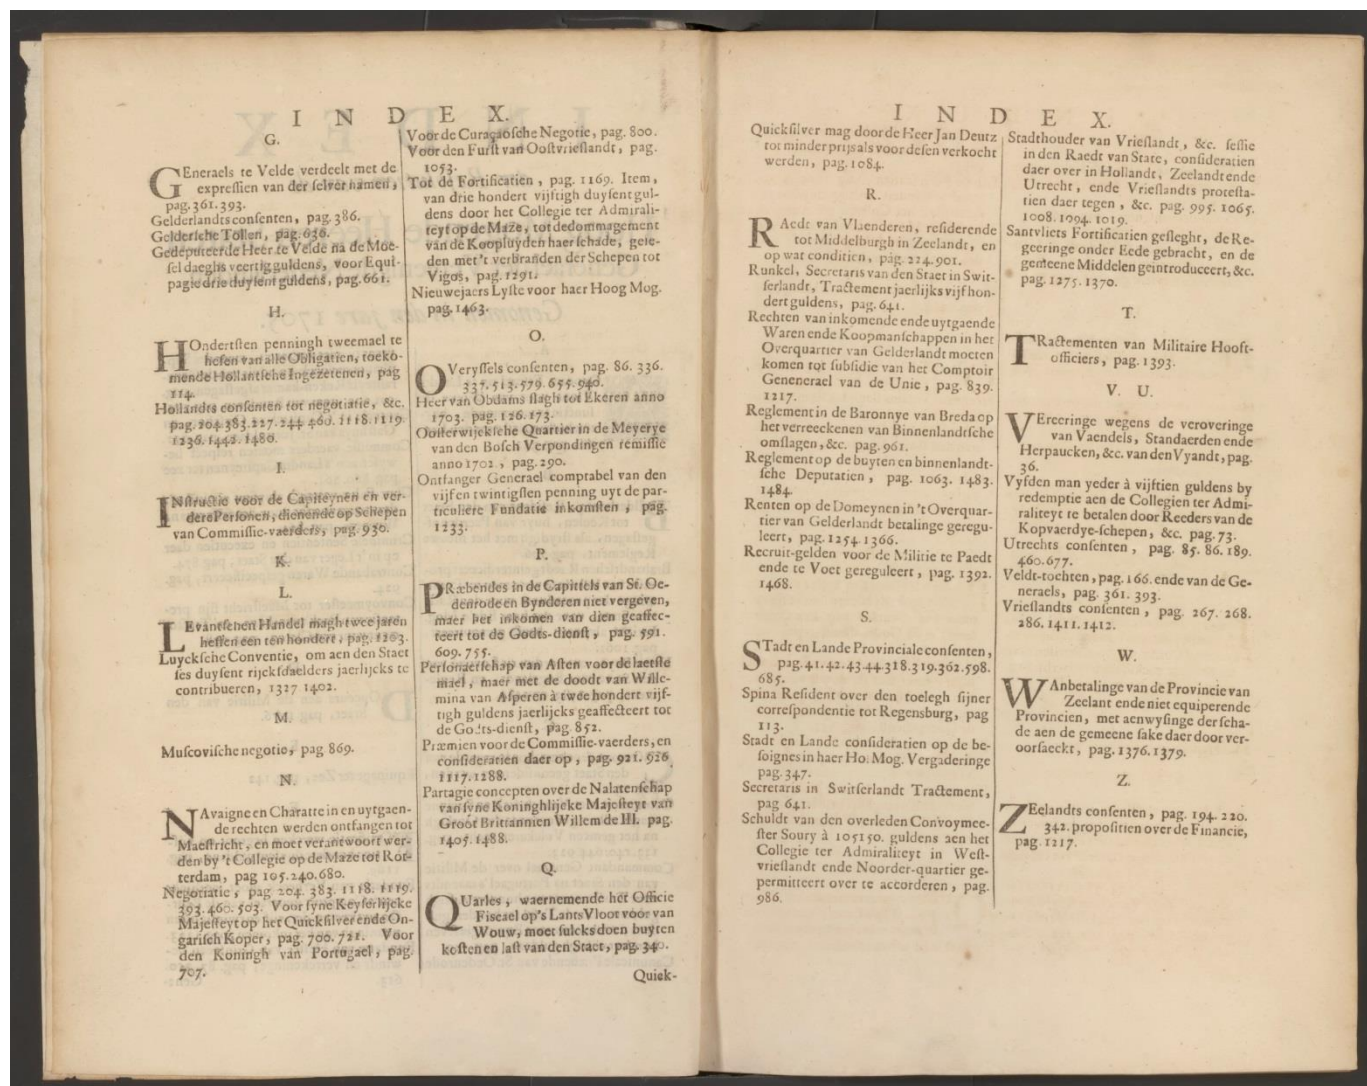 INDEX.
G.
GEneraels te Velde verdeelt met de
expressien van der selver namen,
pag. 361. 393.
Gelderlandts consenten, pag. 386.
Geldersche Tollen, pag. 636.
Gedeputeerde Heer te Velde na de Moe-
sel daeghs veertig guldens, voor Equi-
pagie drie duysent guldens, pag. 661.
H.
HOndertsten penningh tweemael te
heffen van alle Obligatien, toeko-
mende Hollantsche Ingezetenen, pag
114.
Hollandts consenten tot negotiatie, &c.
pag. 204. 383. 227. 244. 460. 1118. 1119.
1236. 1442. 1480.
I.
INstructie voor de Capiteynen en ver-
dere Personen, dienende op Schepen
van Commissie-vaerders, pag. 930.
K.
L.
LEvantschen Handel magh twee jaren
heffen een ten hondert, pag. 1203.
Luycksche Conventie, om aen den Staet
ses duysent rijcksdaelders jaerlijcks te
contribueren, 1327 1402.
M.
Muscovische negotie, pag 869.
N.
NAvaigne en Charatte in en uytgaen-
de rechten werden ontfangen tot
Maestricht, en moet verantwoort wer-
den by 't Collegie op de Maze tot Rot-
terdam, pag 105. 240. 680.
Negotiatie, pag 204. 383. 1118. 1119.
393. 460. 503. Voor syne Keyserlijcke
Majesteyt op het Quicksilver ende On-
garisch Koper, pag. 700. 721. Voor
den Koningh van Portugael, pag.
707.
Voor de Curaçaosche Negotie, pag. 800.
Voor den Furst van Oostvrieslandt, pag.
1053.
Tot de Fortificatien, pag. 1169. Item,
van drie hondert vijftigh duysent gul-
dens door het Collegie ter Admirali-
teyt op de Maze, tot dedommagement
van de Koopluyden haer schade, gele-
den met 't verbranden der Schepen tot
Vigos, pag. 1291.
Nieuwejaers Lyste voor haer Hoog Mog.
pag. 1463.
O.
OVeryssels consenten, pag. 86. 336.
337. 513. 579. 655. 940.
Heer van Obdams slagh tot Ekeren anno
1703. pag. 126. 173.
Oosterwijcksche Quartier in de Meyerye
van den Bosch Verpondingen remissie
anno 1702, pag. 290.
Ontfanger Generael comptabel van den
vijf en twintigsten penning uyt de par-
ticuliere Fundatie inkomsten, pag.
1233.
P.
PRæbendes in de Capittels van St. Oe-
denrode en Bynderen niet vergeven,
maer het inkomen van dien geaffec-
teert tot de Godts-dienst, pag. 591.
609. 755.
Personaetschap van Asten voor de laetste
mael, maer met de doodt van Wille-
mina van Asperen à twee hondert vijf-
tigh guldens jaerlijcks geaffecteert tot
de Godts-dienst, pag 852.
Præmien voor de Commissie-vaerders, en
consideratien daer op, pag. 921. 926
1117. 1288.
Partagie concepten over de Nalatenschap
van syne Koninghlijcke Majesteyt van
Groot Brittannien Willem de III. pag.
1405. 1488.
Q.
QUarles, waernemende het Officie
Fiscael op's Lants Vloot voor van
Wouw, moet sulcks doen buyten
kosten en last van den Staet, pag. 340.
Quick-
INDEX.
Quicksilver mag door de Heer Jan Deutz
tot minder prijs als voor desen verkocht
werden, pag. 1084.
R.
RAedt van Vlaenderen, residerende
tot Middelburgh in Zeelandt, en
op wat conditien, pag. 224. 901.
Runkel, Secretaris van den Staet in Swit-
serlandt, Tractement jaerlijks vijf hon-
dert guldens, pag. 641.
Rechten van inkomende ende uytgaende
Waren ende Koopmanschappen in het
Overquartier van Gelderlandt moeten
komen tot subsidie van het Comptoir
Genenerael van de Unie, pag. 839.
1217.
Reglement in de Baronnye van Breda op
het verreeckenen van Binnenlandtsche
omslagen, &c. pag. 961.
Reglement op de buyten en binnenlandt-
sche Deputatien, pag. 1063. 1483.
1484.
Renten op de Domeynen in 't Overquar-
tier van Gelderlandt betalinge geregu-
leert, pag. 1254. 1366.
Recruit-gelden voor de Militie te Paedt
ende te Voet gereguleert, pag. 1392.
1468.
S.
STadt en Lande Provinciale consenten,
pag. 41. 42. 43. 44. 318. 319. 362. 598.
685.
Spina Resident over den toelegh sijner
correspondentie tot Regensburg, pag
113.
Stadt en Lande consideratien op de be-
soignes in haer Ho. Mog. Vergaderinge
pag. 347.
Secretaris in Switserlandt Tractement,
pag 641.
Schuldt van den overleden Convoymee-
ster Soury à 105150. guldens aen het
Collegie ter Admiraliteyt in West-
vrieslandt ende Noorder-quartier ge-
permitteert over te accorderen, pag.
986.
Stadthouder van Vrieslandt, &c. sessie
in den Raedt van State, consideratien
daer over in Hollandt, Zeelandt ende
Utrecht, ende Vrieslandts protesta-
tien daer tegen, &c. pag. 995. 1065.
1008. 1094. 1019.
Santvliets Fortificatien geslegt, de Re-
geeringe onder Eede gebracht, en de
gemeene Middelen geintroduceert, &c.
pag. 1275. 1370.
T.
TRactementen van Militaire Hooft-
officiers, pag. 1393.
V. U.
VEreeringe wegens de veroveringe
van Vaendels, Standaerden ende
Herpaucken, &c. van den Vyandt, pag.
36.
Vyfden man yeder à vijftien guldens by
redemptie aen de Collegien ter Admi-
raliteyt te betalen door Reeders van de
Kopvaerdye-schepen, &c. pag. 73.
Utrechts consenten, pag. 85. 86. 189.
460. 677.
Veldt-tochten, pag. 166. ende van de Ge-
neraels, pag. 361. 393.
Vrieslandts consenten, pag. 267. 268.
286. 1411. 1412.
W.
WAnbetalinge van de Provincie van
Zeelant ende niet equiperende
Provincien, met aenwysinge der scha-
de aen de gemeene sake daer door ver-
oorsaeckt, pag. 1376. 1379.
Z.
ZEelandts consenten, pag. 194. 220.
342. propositien over de Financie,
pag. 1217.